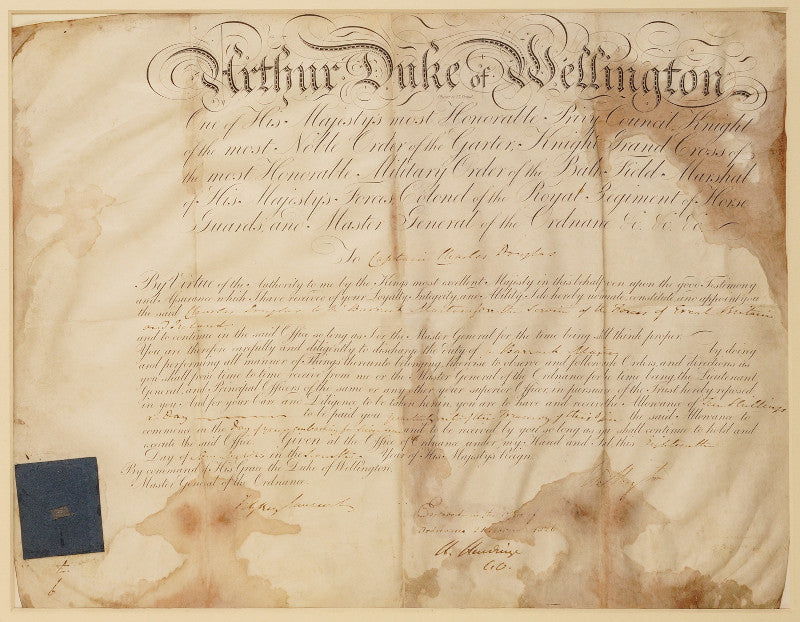 Arthur Duke of Wellington
One of His Majesty's most Honorable Privy Council, Knight
of the most Noble Order of the Garter, Knight Grand Cross of
the most Honorable Military Order of the Bath Field Marshal
of His Majesty's Forces Colonel of the Royal Regiment of Horse
Guards, and Master General of the Ordnance &c. &c. &c.
To Captain Charles Douglas
By Virtue of the Authority to me by the Kings most excellent Majesty in this behalf given upon the good Testimony
and Assurance which I have received of your Loyalty, Integrity, and Ability I do hereby nominate constitute and appoint you
the said Charles Douglas to be Barrack Master for the Service of the Forces of Great Britain
and Ireland
and to continue in the said Office so long as I or the Master General for the time being shall think proper.
You are therefore carefully and diligently to discharge the duty of a Barrack Master by doing
and performing all manner of Things thereunto belonging, likewise to observe and follow such Orders, and directions as
you shall from time to time receive from me or the Master General of the Ordnance for the time being, the Lieutenant
General, and Principal Officers of the same or any other your superior Officer in pursuance of the Trust hereby reposed
in you And for your Care and Diligence to be taken herein you are to have and receive the Allowance of Ten Shillings
a Day to be paid you the said Allowance to
commence on the Day of and to be received by you so long as you shall continue to hold and
execute the said Office. Given at the Office of Ordnance under my Hand and Seal this Eighteenth
Day of in the Seventh Year of His Majesty's Reign.
By command of His Grace the Duke of Wellington
Master General of the Ordnance.